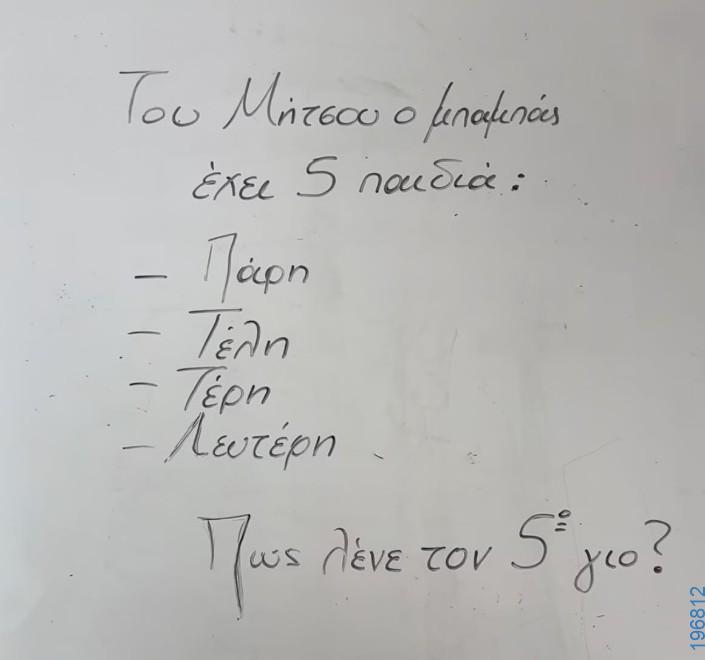 Του Μήτσου ο μπαμπάς
έχει 5 παιδιά:
- Πάρη
- Τέλη
- Τέρη
- Λευτέρη
Πως λένε τον 5º γιο?
196812